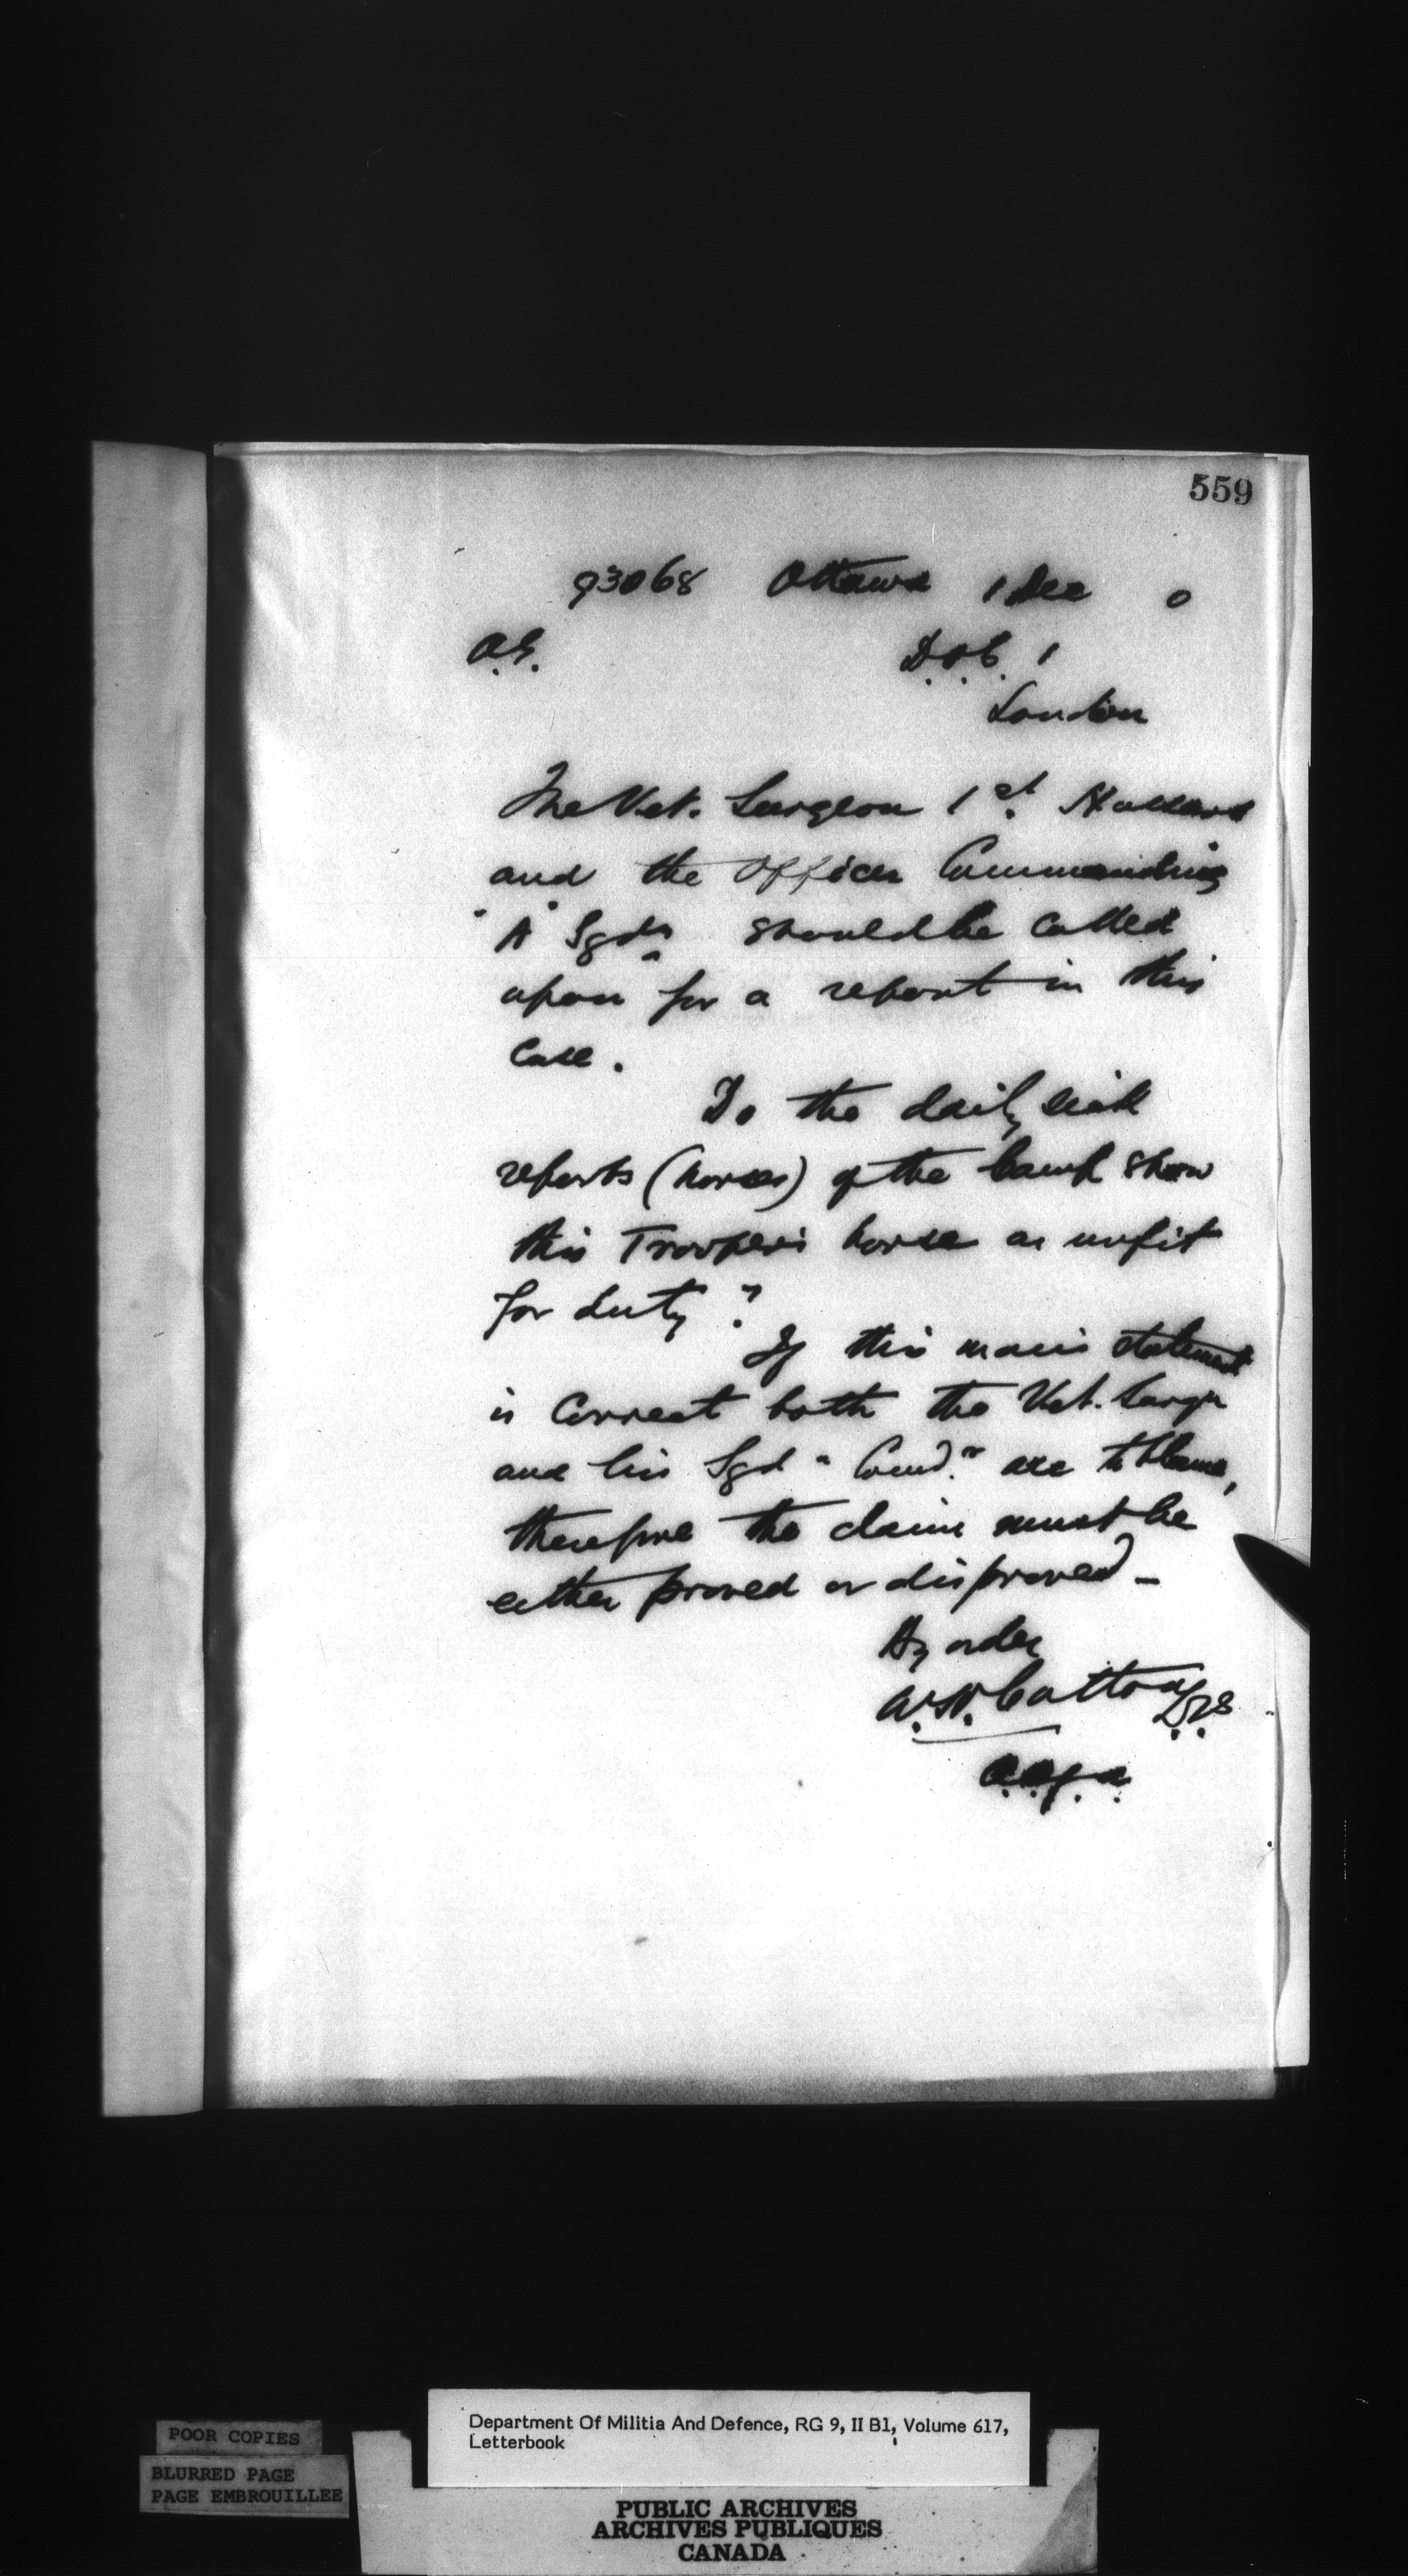 559
93068 Ottawa 1 Dec 0
A.G. D.O.C. 1
London
The Vet. Surgeon 1st Hussars
and the Officer Commanding
"A" Sqdn should be called
upon for a report in this
case.
Do the daily sick
reports (horses) of the Camp show
this Trooper's horse as unfit
for duty?
If this man's statement
is correct both the Vet. Surgn
and his Sqdn Comdr are to blame,
therefore the claim must be
either proved or disproved -
By order
Cotton
Department Of Militia And Defence, RG 9, II B1, Volume 617,
Letterbook
POOR COPIES
BLURRED PAGE
PAGE EMBROUILLEE
PUBLIC ARCHIVES
ARCHIVES PUBLIQUES
CANADA